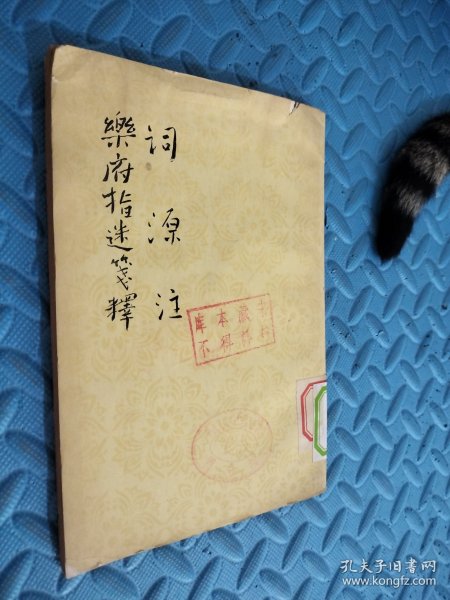 词源注
樂府指迷箋釋
库本藏
不得
孔夫子旧书网
www.kongfz.com